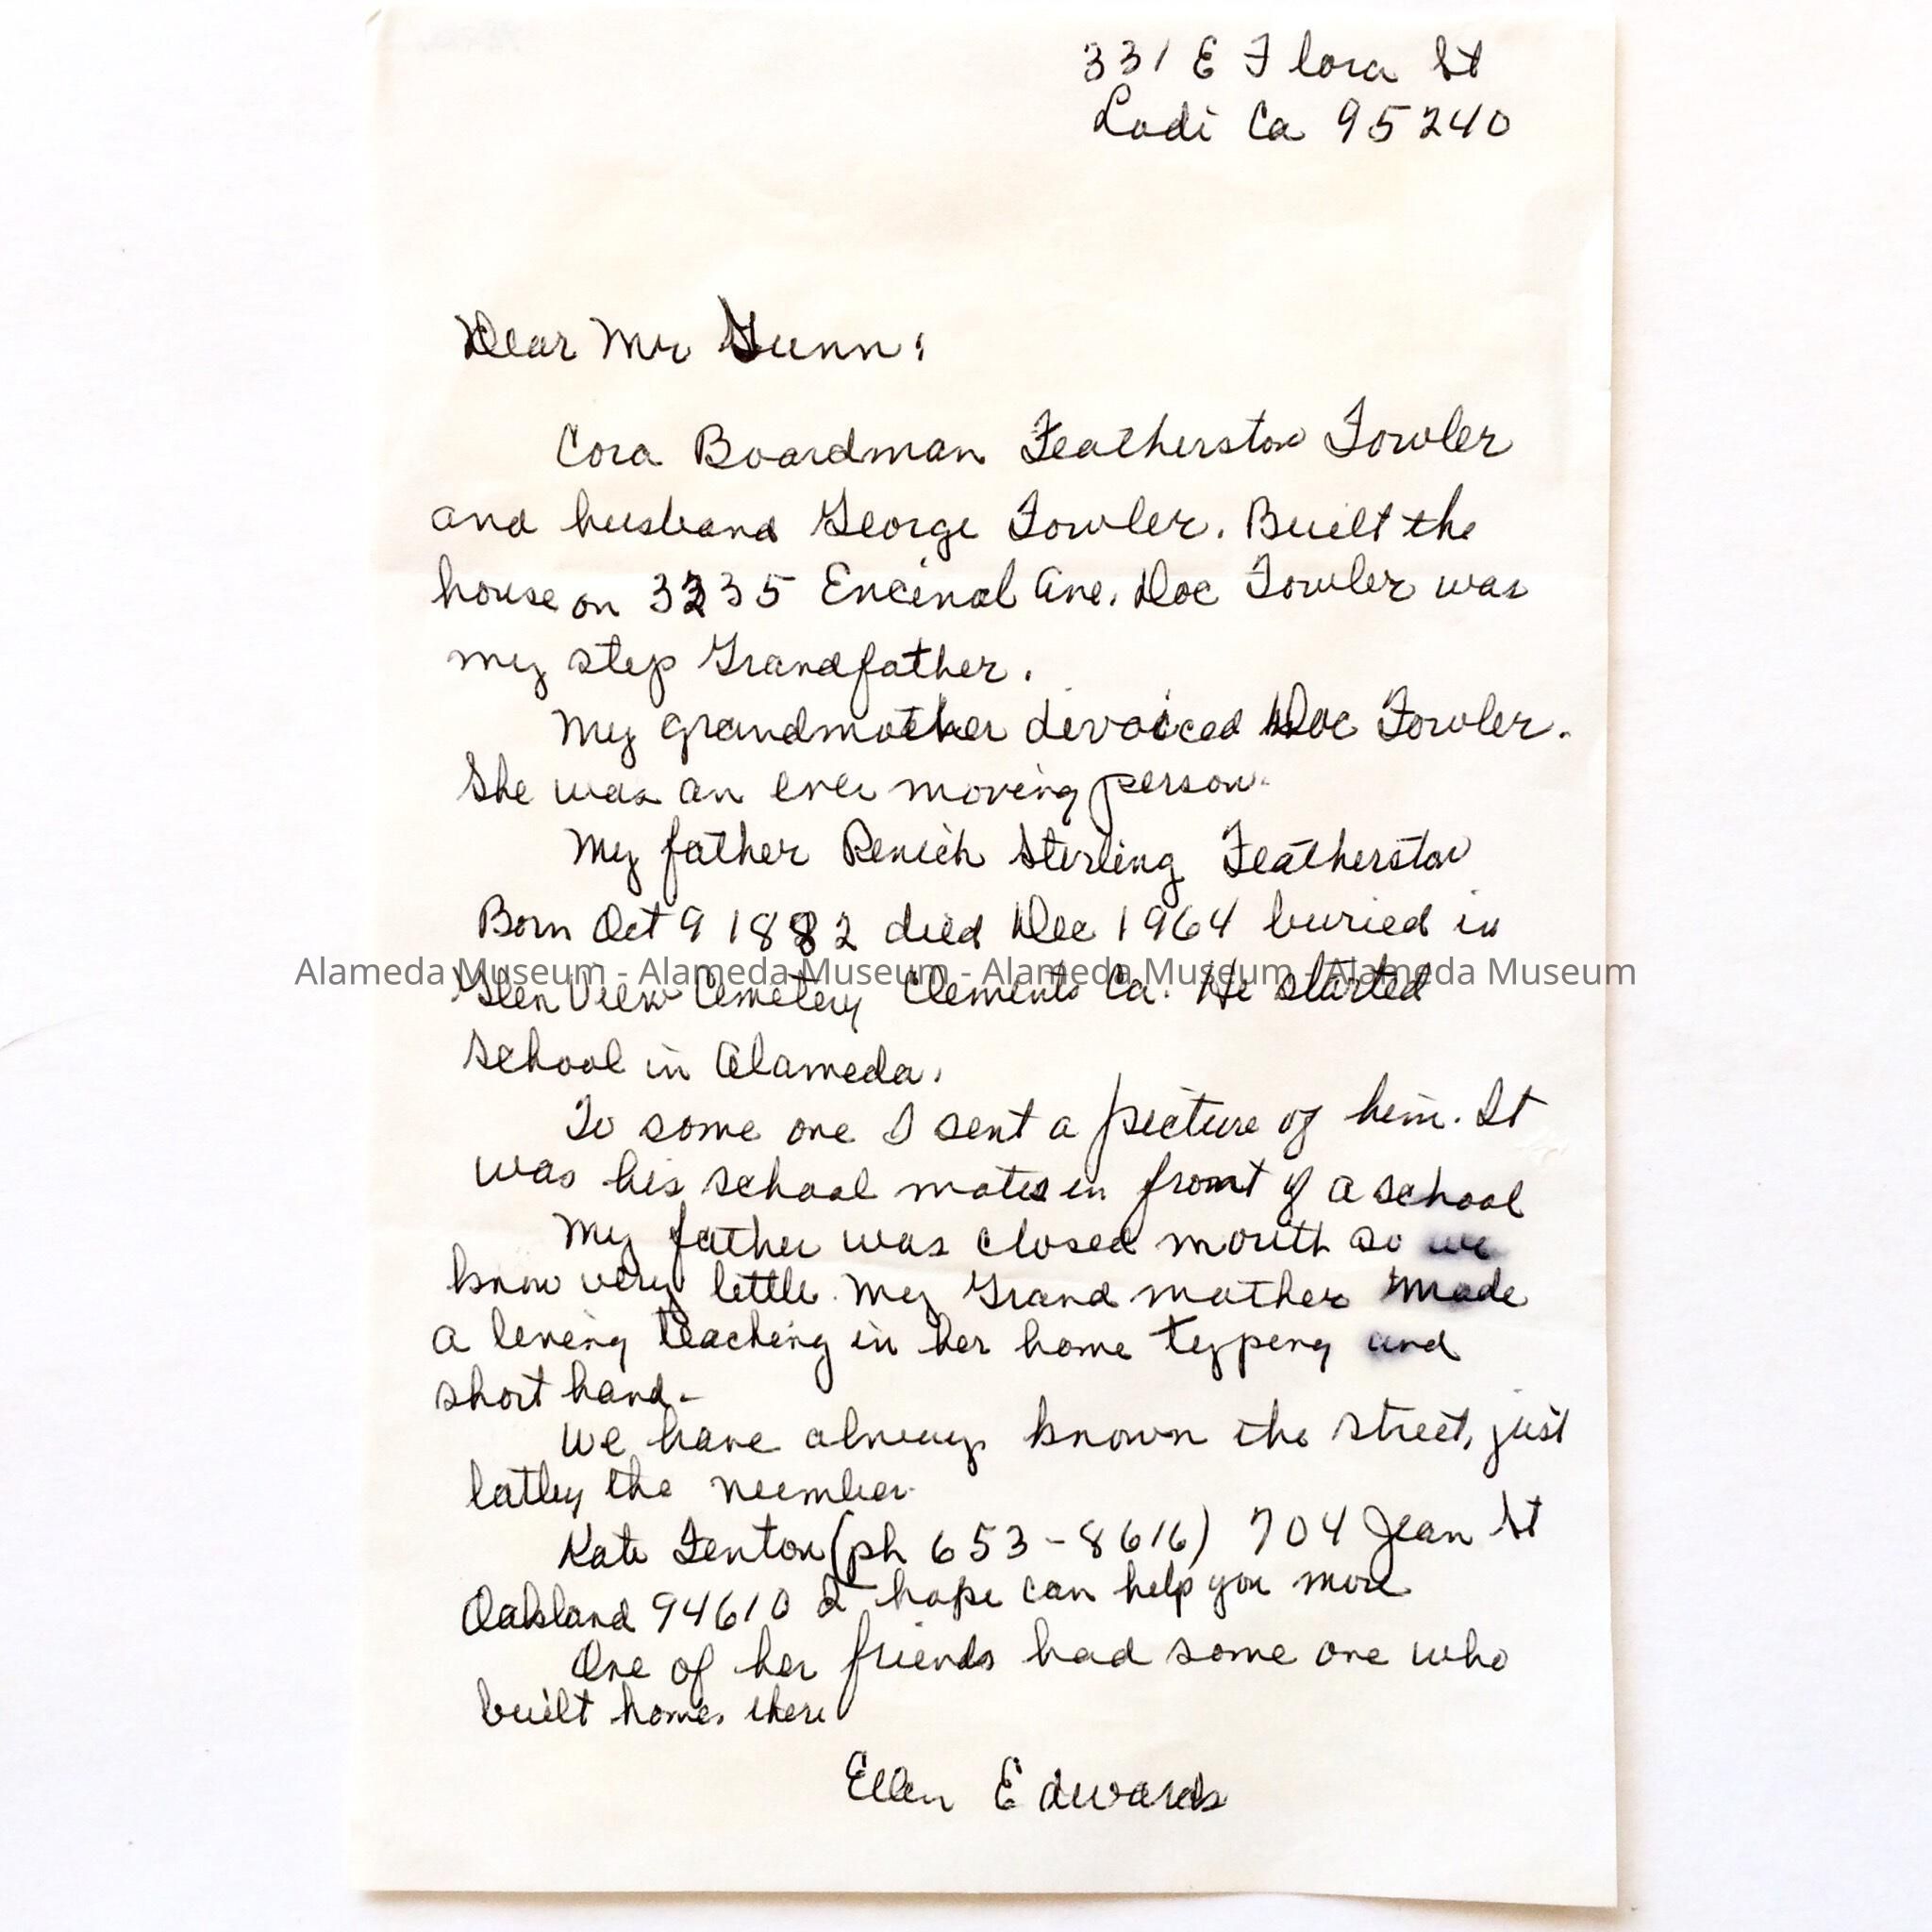 331 E Flora St
Lodi Ca 95240
Dear Mr Gunn:
Cora Boardman Featherston Fowler
and husband George Fowler. Built the
house on 3235 Encinal Ave. Doc Fowler was
my step Grandfather.
My grandmother devoiced Doc Fowler.
She was an ever moving person.
My father Renich Sterling Featherston
Born Oct 9 1882 died Dec 1964 buried in
Alameda Museum - Alameda Museum - Alameda Museum - Alameda Museum
Glen View Cemetery Clements Ca. He started
school in Alameda.
To some one I sent a picture of him. It
was his school mates in front of a school
My father was closed mouth so we
know very little. My Grand mother made
a liveing teaching in her home typeing and
short hand.
We have always known the street, just
latley the number.
Kate Fenton (ph 653-8616) 704 Jean St
Oakland 94610 I hope can help you more
One of her friends had some one who
built homes there
Ellen Edwards